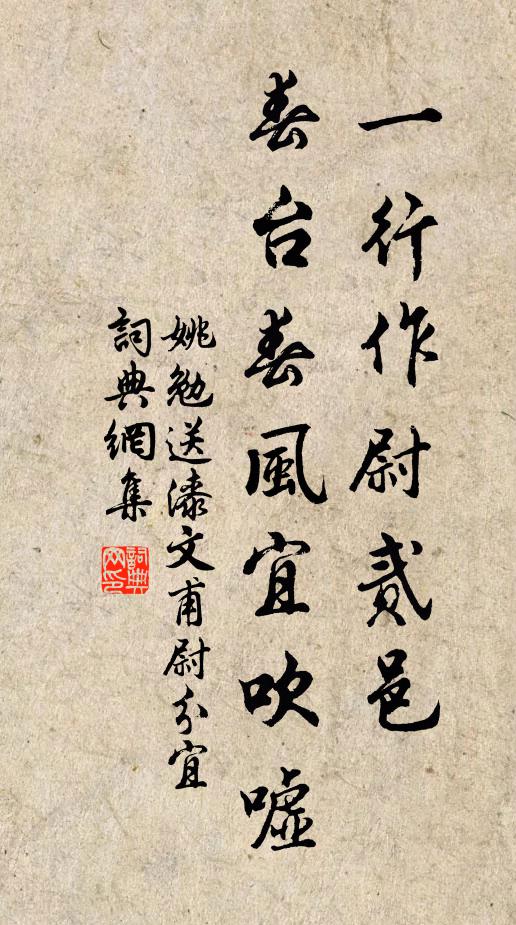 一行作尉貳邑
春台春風宜吹噓
姚勉送漆文甫尉分宜
詞典網集
詞典网印